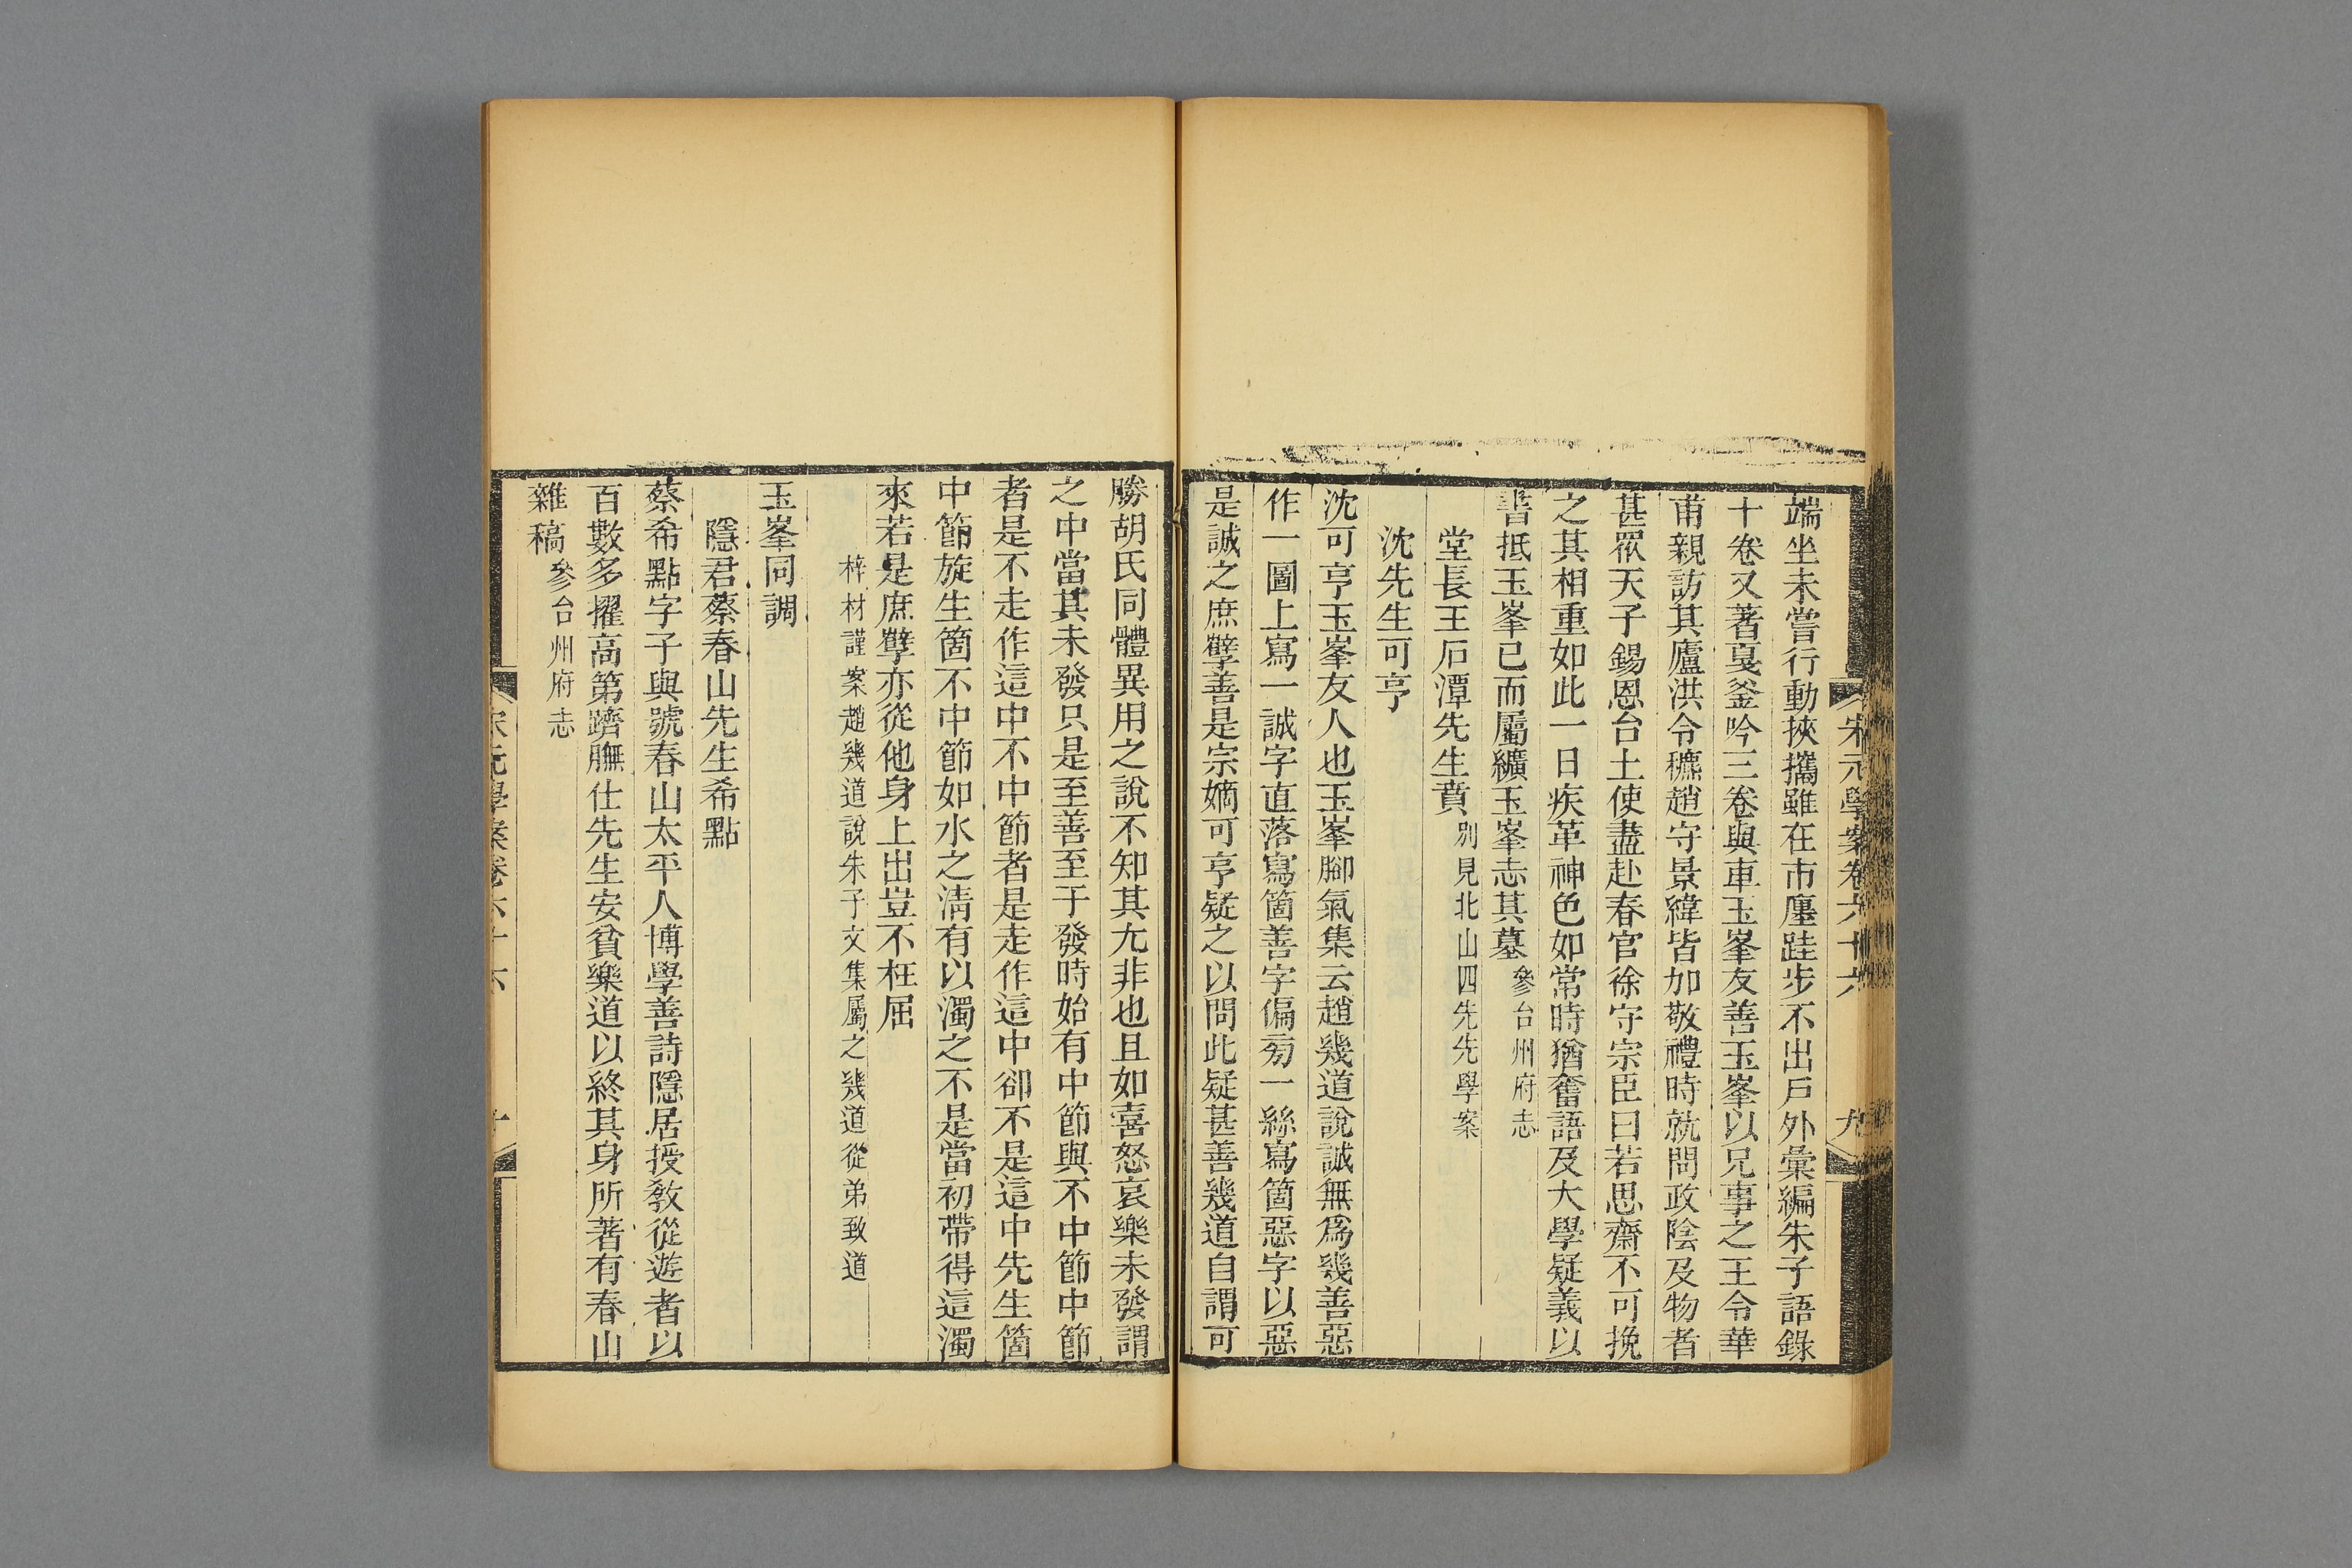 宋元學案卷六十六 九
端坐未嘗行動挾攜雖在市廛跬步不出戶外彙編朱子語錄
十卷又著戛釜吟三卷與車玉峯友善玉峯以兄事之王令華
甫親訪其廬洪令穮趙守景緯皆加敬禮時就問政陰及物者
甚眾天子錫恩台土使盡赴春官徐守宗臣曰若思齋不可挽
之其相重如此一日疾革神色如常時猶奮語及大學疑義以
書抵玉峯已而屬纊玉峯志其墓參台州府志
堂長王石潭先生賁別見北山四先先學案
沈先生可亨
沈可亨玉峯友人也玉峯腳氣集云趙幾道說誠無爲幾善惡
作一圖上寫一誠字直落寫箇善字偏旁一絲寫箇惡字以惡
是誠之庶孽善是宗嫡可亨疑之以問此疑甚善幾道自謂可
勝胡氏同體異用之說不知其尢非也且如喜怒哀樂未發謂
之中當其未發只是至善至于發時始有中節與不中節中節
者是不走作這中不中節者是走作這中卻不是這中先生箇
中節旋生箇不中節如水之淸有以濁之不是當初帶得這濁
來若是庶孽亦從他身上出豈不枉屈
梓材謹案趙幾道說朱子文集屬之幾道從弟致道
玉峯同調
隱君蔡春山先生希點
蔡希點字子與號春山太平人博學善詩隱居授敎從遊者以
百數多擢高第躋膴仕先生安貧樂道以終其身所著有春山
雜稿參台州府志
宋元學案卷六十六